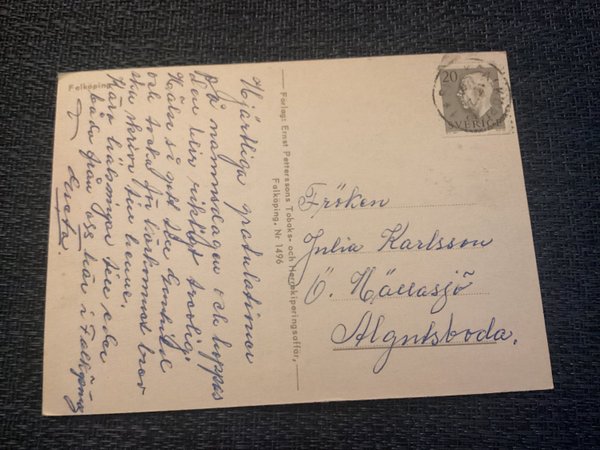 Falköping
Hjärtliga gratulationer
på namnsdagen och hoppas
den blir riktigt trevlig.
Hälsa så gott till Gunhild
och tacka för välkommet brev
ska skriva till henne.
Kära hälsningar till eder
båda från oss här i Falköping
Greta.
Förlag: Ernst Petterssons Tobaks- och Herrekiperingsaffär,
Falköping. Nr 1496
20
SVERIGE
Fröken
Julia Karlsson
Ö. Hällasjö
Algutsboda.